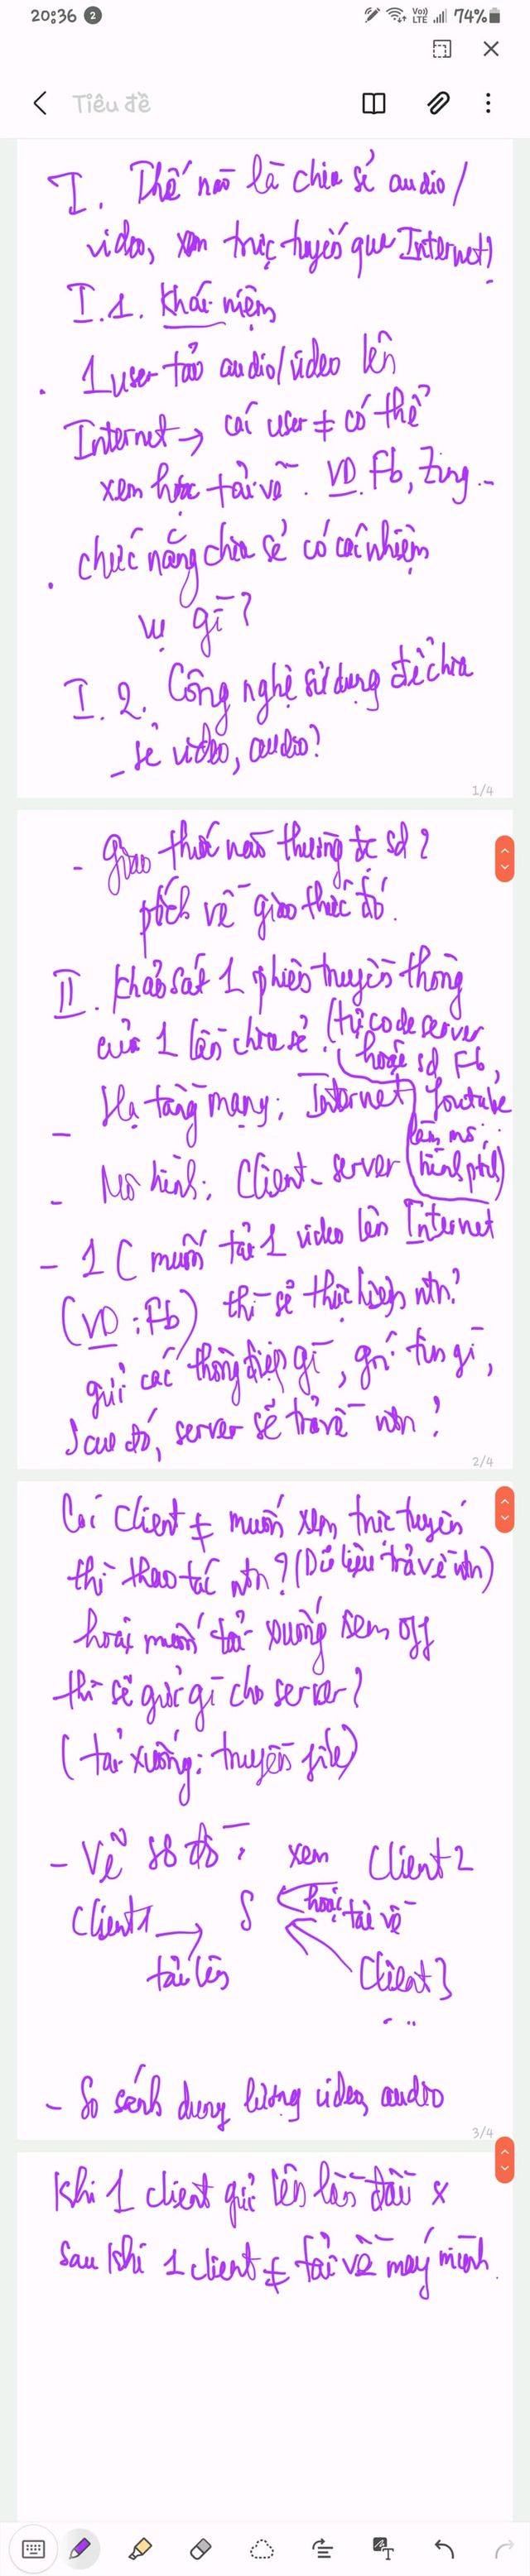 20:36 2
Vo)) LTE 74%
Tiêu đề
I. Thế nào là chia sẻ audio/
video, xem trực tuyến qua Internet?
I.1. Khái niệm
. 1 user tải audio/video lên
Internet → cái user ≠ có thể
xem hoặc tải về. VD. Fb, Zing...
. chức năng chia sẻ có cái nhiệm
vụ gì?
I.2. Công nghệ sử dụng để chia
- sẻ video, audio?
1/4
- giao thức nào thường đc sd?
ptích về giao thức đó.
II. Khảo sát 1 phiên truyền thông
của 1 lần chia sẻ. (tự code server
hoặc sd Fb,
- Hạ tầng mạng: Internet Youtube
làm mô
- Mô hình: Client-server hình ptích)
- 1 C muốn tải 1 video lên Internet
(VD: Fb) thì sẽ thực hiện ntn?
gửi các thông điệp gì, gói tin gì,
sau đó, server sẽ trả về ntn?
2/4
Cái client ≠ muốn xem trực tuyến
thì thao tác ntn? (Dữ liệu trả về ntn)
hoặc muốn tải xuống xem off
thì sẽ gửi gì cho server?
(tải xuống: truyền file)
- Vẽ sơ đồ: xem Client 2
Client 1 → S hoặc tải về
tải lên Client 3
...
- So sánh dung lượng video, audio
3/4
Khi 1 client gửi lên lần đầu x
sau khi 1 client ≠ tải về máy mình.